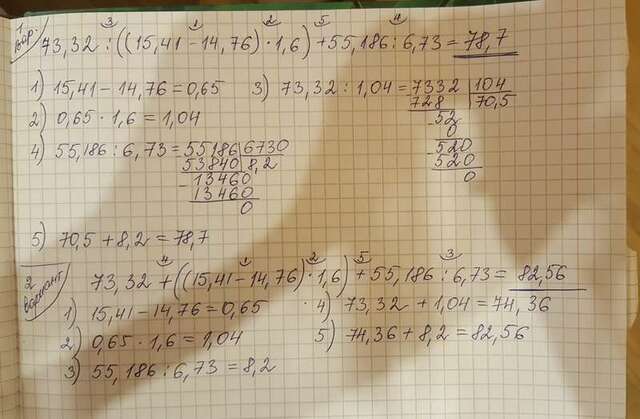 1 вар.
3 1 2 5 4
73,32 : ((15,41 - 14,76) · 1,6) + 55,186 : 6,73 = 78,7
1) 15,41 - 14,76 = 0,65 3) 73,32 : 1,04 = 7332 | 104
728 70,5
2) 0,65 · 1,6 = 1,04 - 52
0
4) 55,186 : 6,73 = - 55186 | 6730 - 520
53840 8,2 520
- 13460 0
13460
0
5) 70,5 + 8,2 = 78,7
2 вариант
4 1 2 5 3
73,32 + ((15,41 - 14,76) · 1,6) + 55,186 : 6,73 = 82,56
1) 15,41 - 14,76 = 0,65 4) 73,32 + 1,04 = 74,36
2) 0,65 · 1,6 = 1,04 5) 74,36 + 8,2 = 82,56
3) 55,186 : 6,73 = 8,2